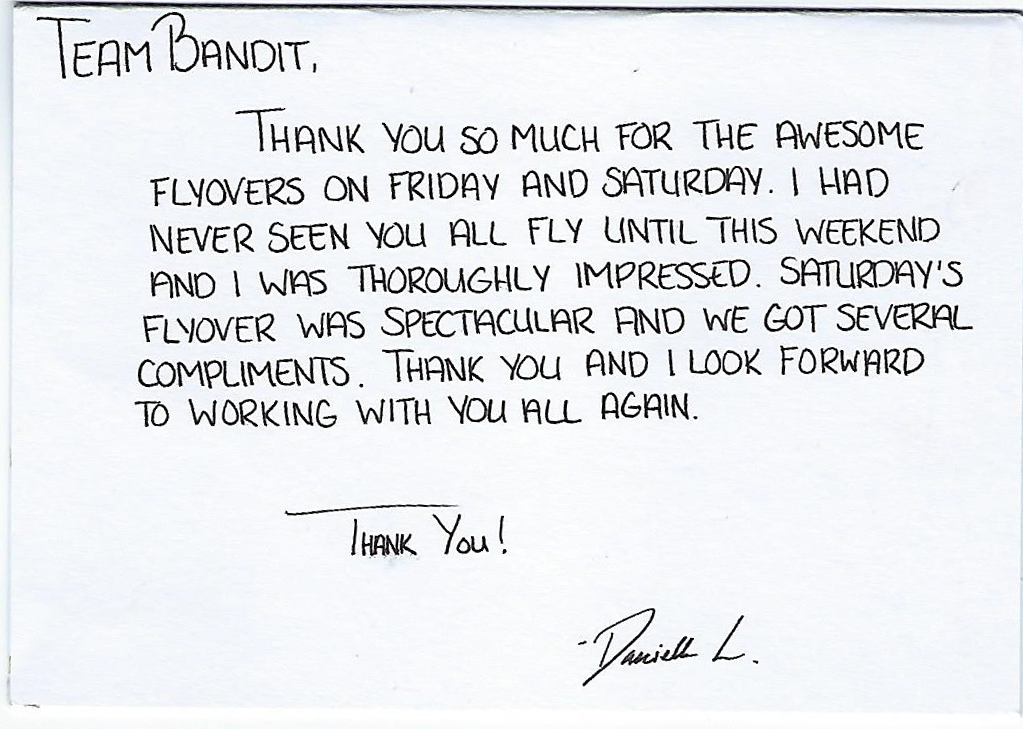 TEAM BANDIT,
THANK YOU SO MUCH FOR THE AWESOME
FLYOVERS ON FRIDAY AND SATURDAY. I HAD
NEVER SEEN YOU ALL FLY UNTIL THIS WEEKEND
AND I WAS THOROUGHLY IMPRESSED. SATURDAY'S
FLYOVER WAS SPECTACULAR AND WE GOT SEVERAL
COMPLIMENTS. THANK YOU AND I LOOK FORWARD
TO WORKING WITH YOU ALL AGAIN.
THANK YOU!
-Danielle L.